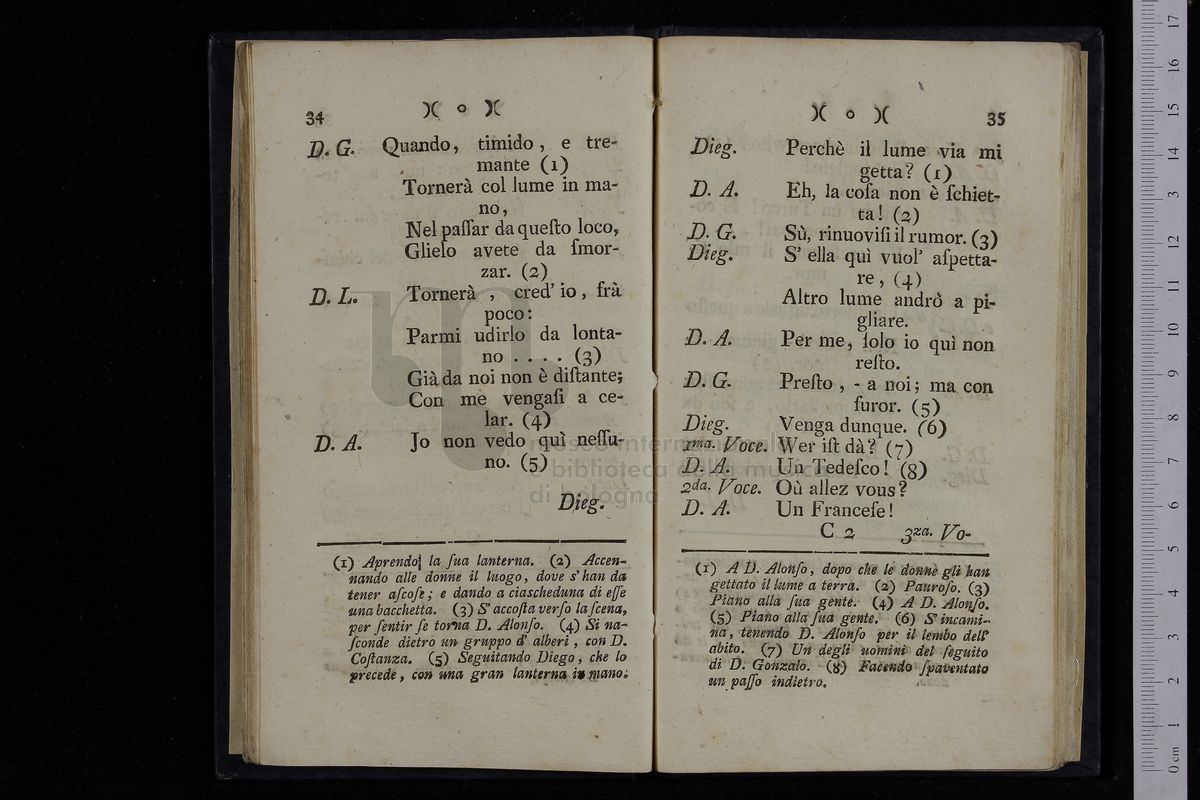 34 )( o )(
D. G. Quando, timido, e tre-
mante (1)
Tornerà col lume in ma-
no,
Nel paſſar da queſto loco,
Glielo avete da ſmor-
zar. (2)
D. L. Tornerà , cred' io, frà
poco:
Parmi udirlo da lonta-
no . . . . (3)
Già da noi non è diſtante;
Con me vengaſi a ce-
lar. (4)
D. A. Jo non vedo quì neſſu-
no. (5)
Dieg.
(1) Aprendo la ſua lanterna. (2) Accen-
nando alle donne il luogo, dove s' han da
tener aſcoſe; e dando a ciaſcheduna di eſſe
una bacchetta. (3) S' accoſta verſo la ſcena,
per ſentir ſe torna D. Alonſo. (4) Si na-
ſconde dietro un gruppo d' alberi, con D.
Coſtanza. (5) Seguitando Diego, che lo
precede, con una gran lanterna in mano.
)( o )( 35
Dieg. Perchè il lume via mi
getta? (1)
D. A. Eh, la coſa non è ſchiet-
ta! (2)
D. G. Sù, rinuoviſi il rumor. (3)
Dieg. S' ella quì vuol' aſpetta-
re, (4)
Altro lume andrò a pi-
gliare.
D. A. Per me, ſolo io quì non
reſto.
D. G. Preſto, - a noi; ma con
furor. (5)
Dieg. Venga dunque. (6)
1ma. Voce. Wer iſt dà? (7)
D. A. Un Tedeſco! (8)
2da. Voce. Où allez vous?
D. A. Un Franceſe!
C 2 3za. Vo-
(1) A D. Alonſo, dopo che le donnè gli han
gettato il lume a terra. (2) Pauroſo. (3)
Piano alla ſua gente. (4) A D. Alonſo.
(5) Piano alla ſua gente. (6) S' incami-
na, tenendo D. Alonſo per il lembo dell'
abito. (7) Un degli uomini del ſeguito
di D. Gonzalo. (8) Facendo ſpaventato
un paſſo indietro.
museo internazionale
e biblioteca della musica
di bologna
0 cm 1 2 3 4 5 6 7 8 9 10 11 12 13 14 15 16 17